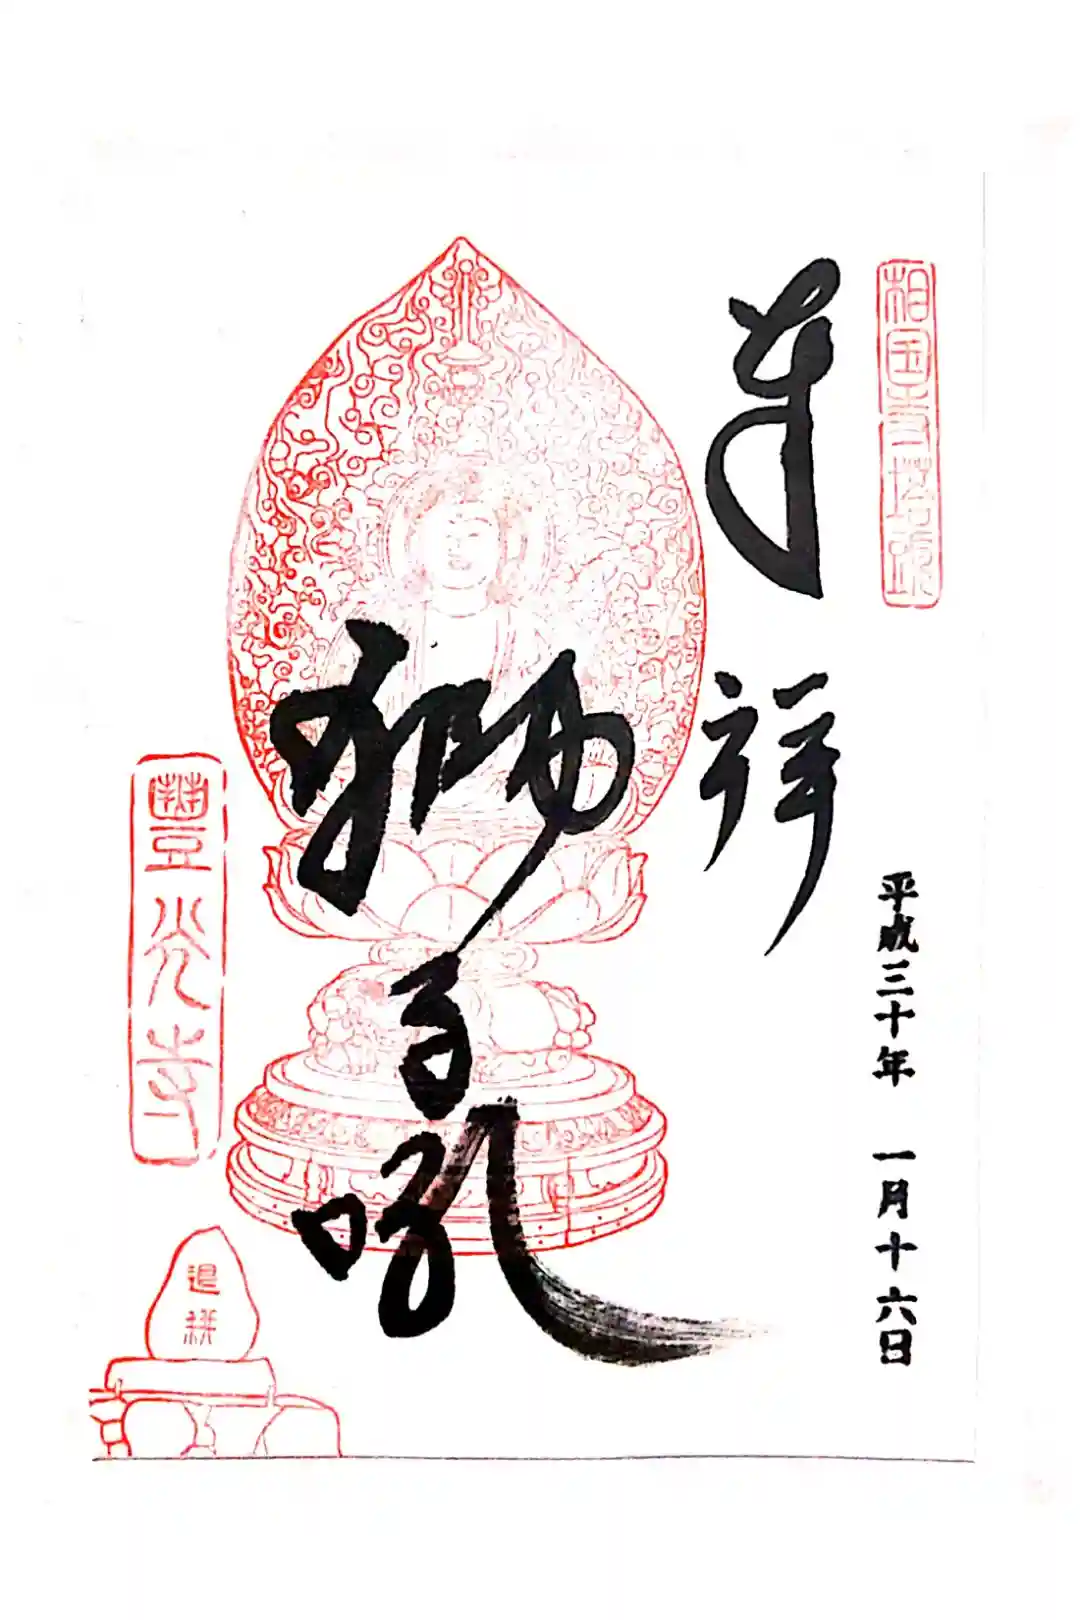 相国寺塔頭
奉
祥
平成三十年 一月十六日
獅子吼
豊光寺
退耕